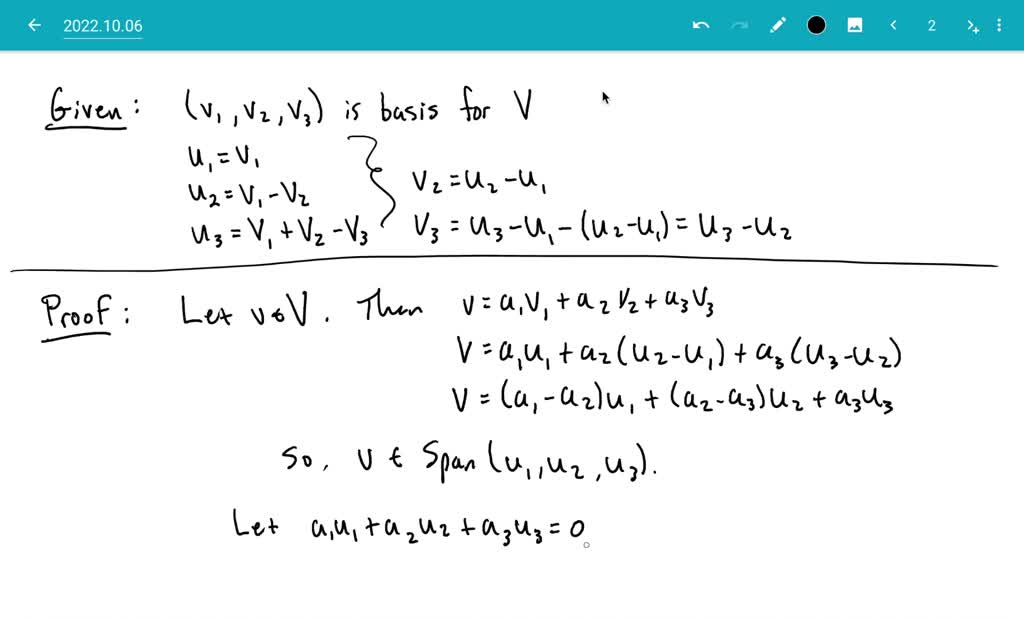 2022.10.06
2
Given: (v₁, v₂, v₃) is basis for V
u₁ = v₁
u₂ = v₁ - v₂
u₃ = v₁ + v₂ - v₃
v₂ = u₂ - u₁
v₃ = u₃ - u₁ - (u₂ - u₁) = u₃ - u₂
Proof: Let v ∈ V. Then v = a₁v₁ + a₂v₂ + a₃v₃
v = a₁u₁ + a₂(u₂ - u₁) + a₃(u₃ - u₂)
v = (a₁ - a₂)u₁ + (a₂ - a₃)u₂ + a₃u₃
So, v ∈ Span(u₁, u₂, u₃).
Let a₁u₁ + a₂u₂ + a₃u₃ = 0